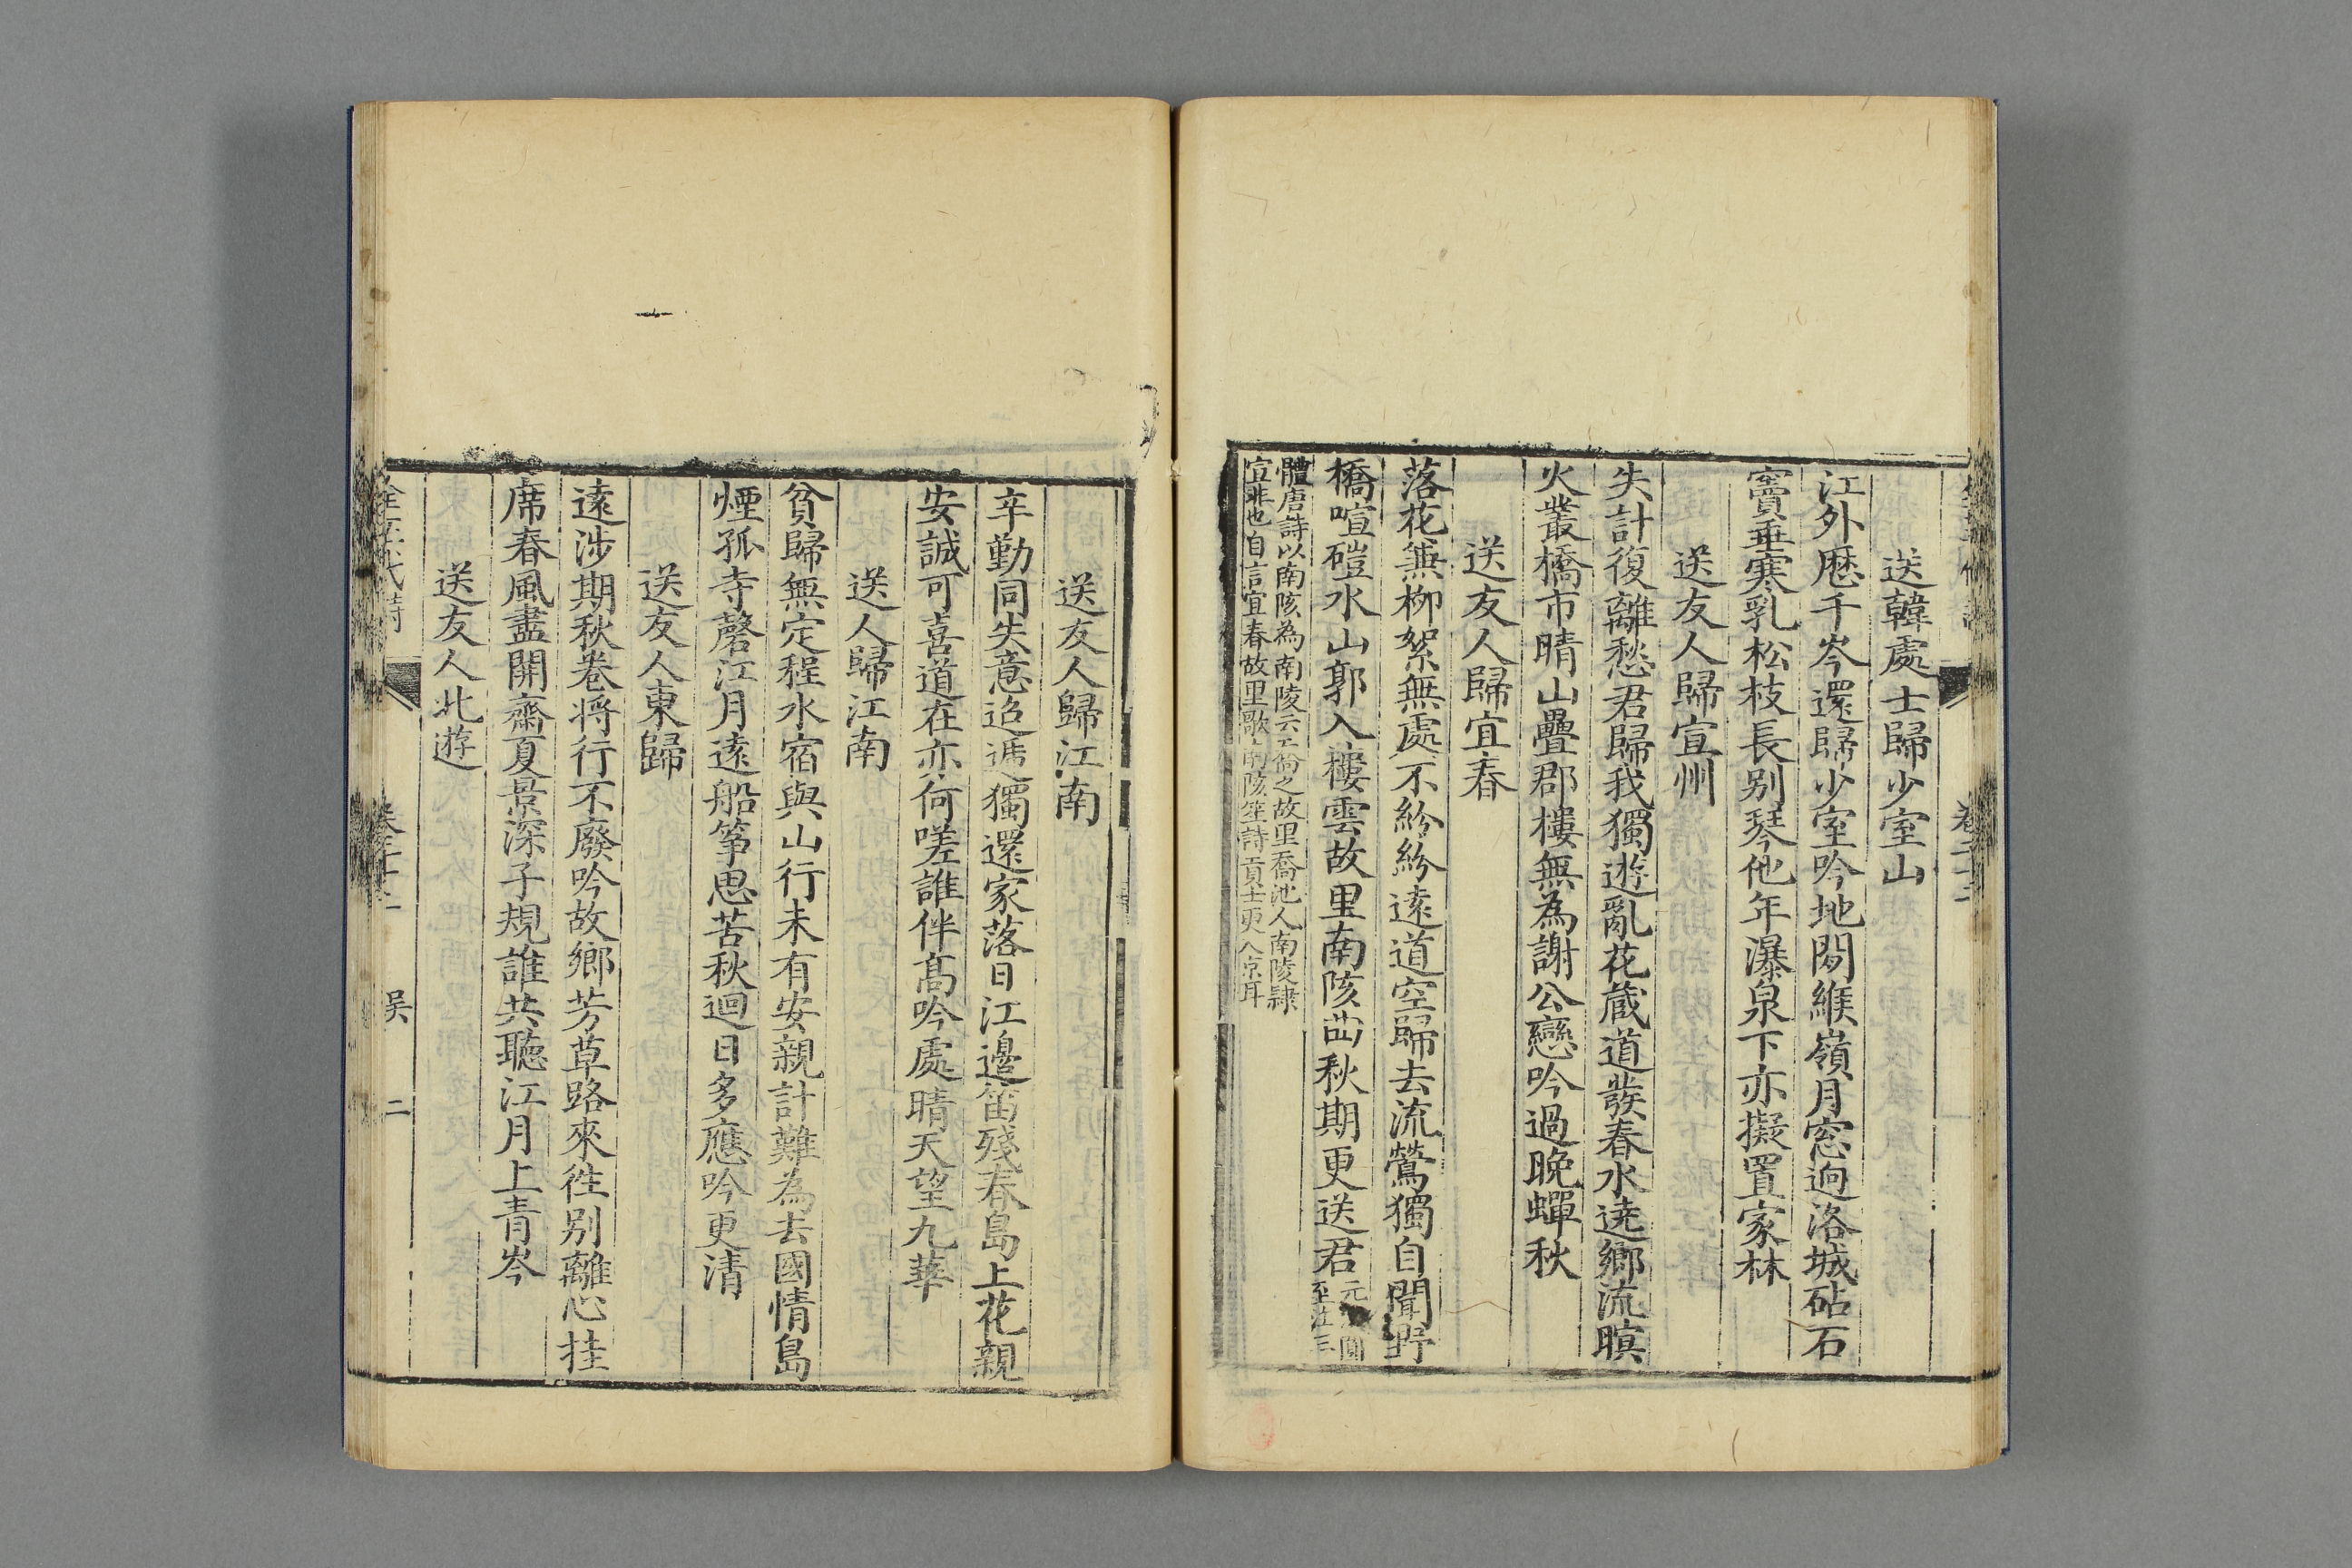 送韓處士歸少室山
江外歷千岑還歸少室吟地閑緱嶺月窓逈洛城砧石
竇垂寒乳松枝長别琴他年瀑泉下亦擬置家林
送友人歸宣州
失計復離愁君歸我獨遊亂花藏道發春水遶鄉流暝
火叢橋市晴山疊郡樓無為謝公戀吟過晚蟬秋
送友人歸宜春
落花兼柳絮無處不紛紛遠道空歸去流鶯獨自聞野
橋喧磑水山郭入樓雲故里南陔曲秋期更送君
體唐詩以南陔為南陵云
故里喬池人南陵隷
宣非也自言宜春故里歌
陔笙詩貢士更入京耳
卷二十二
送友人歸江南
辛勤同失意迢遞獨還家落日江邊笛殘春島上花親
安誠可喜道在亦何嗟誰伴髙吟處晴天望九華
送人歸江南
貧歸無定程水宿與山行未有安親計難為去國情島
煙孤寺磬江月遠船筝思苦秋迴日多應吟更清
送友人東歸
遠涉期秋卷将行不廢吟故鄉芳草路來徃别離心挂
席春風盡開齋夏景深子規誰共聽江月上青岑
送友人北遊
全五代詩
吴
二